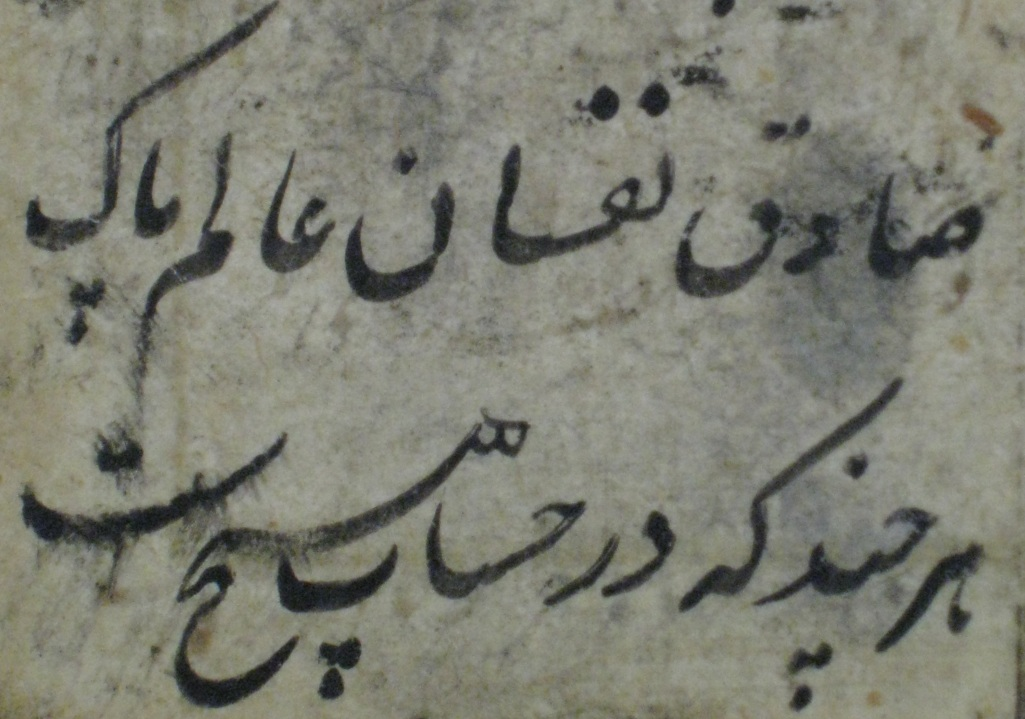 صادق نفسان عالم پاک
هر چند که در حساب هیچست